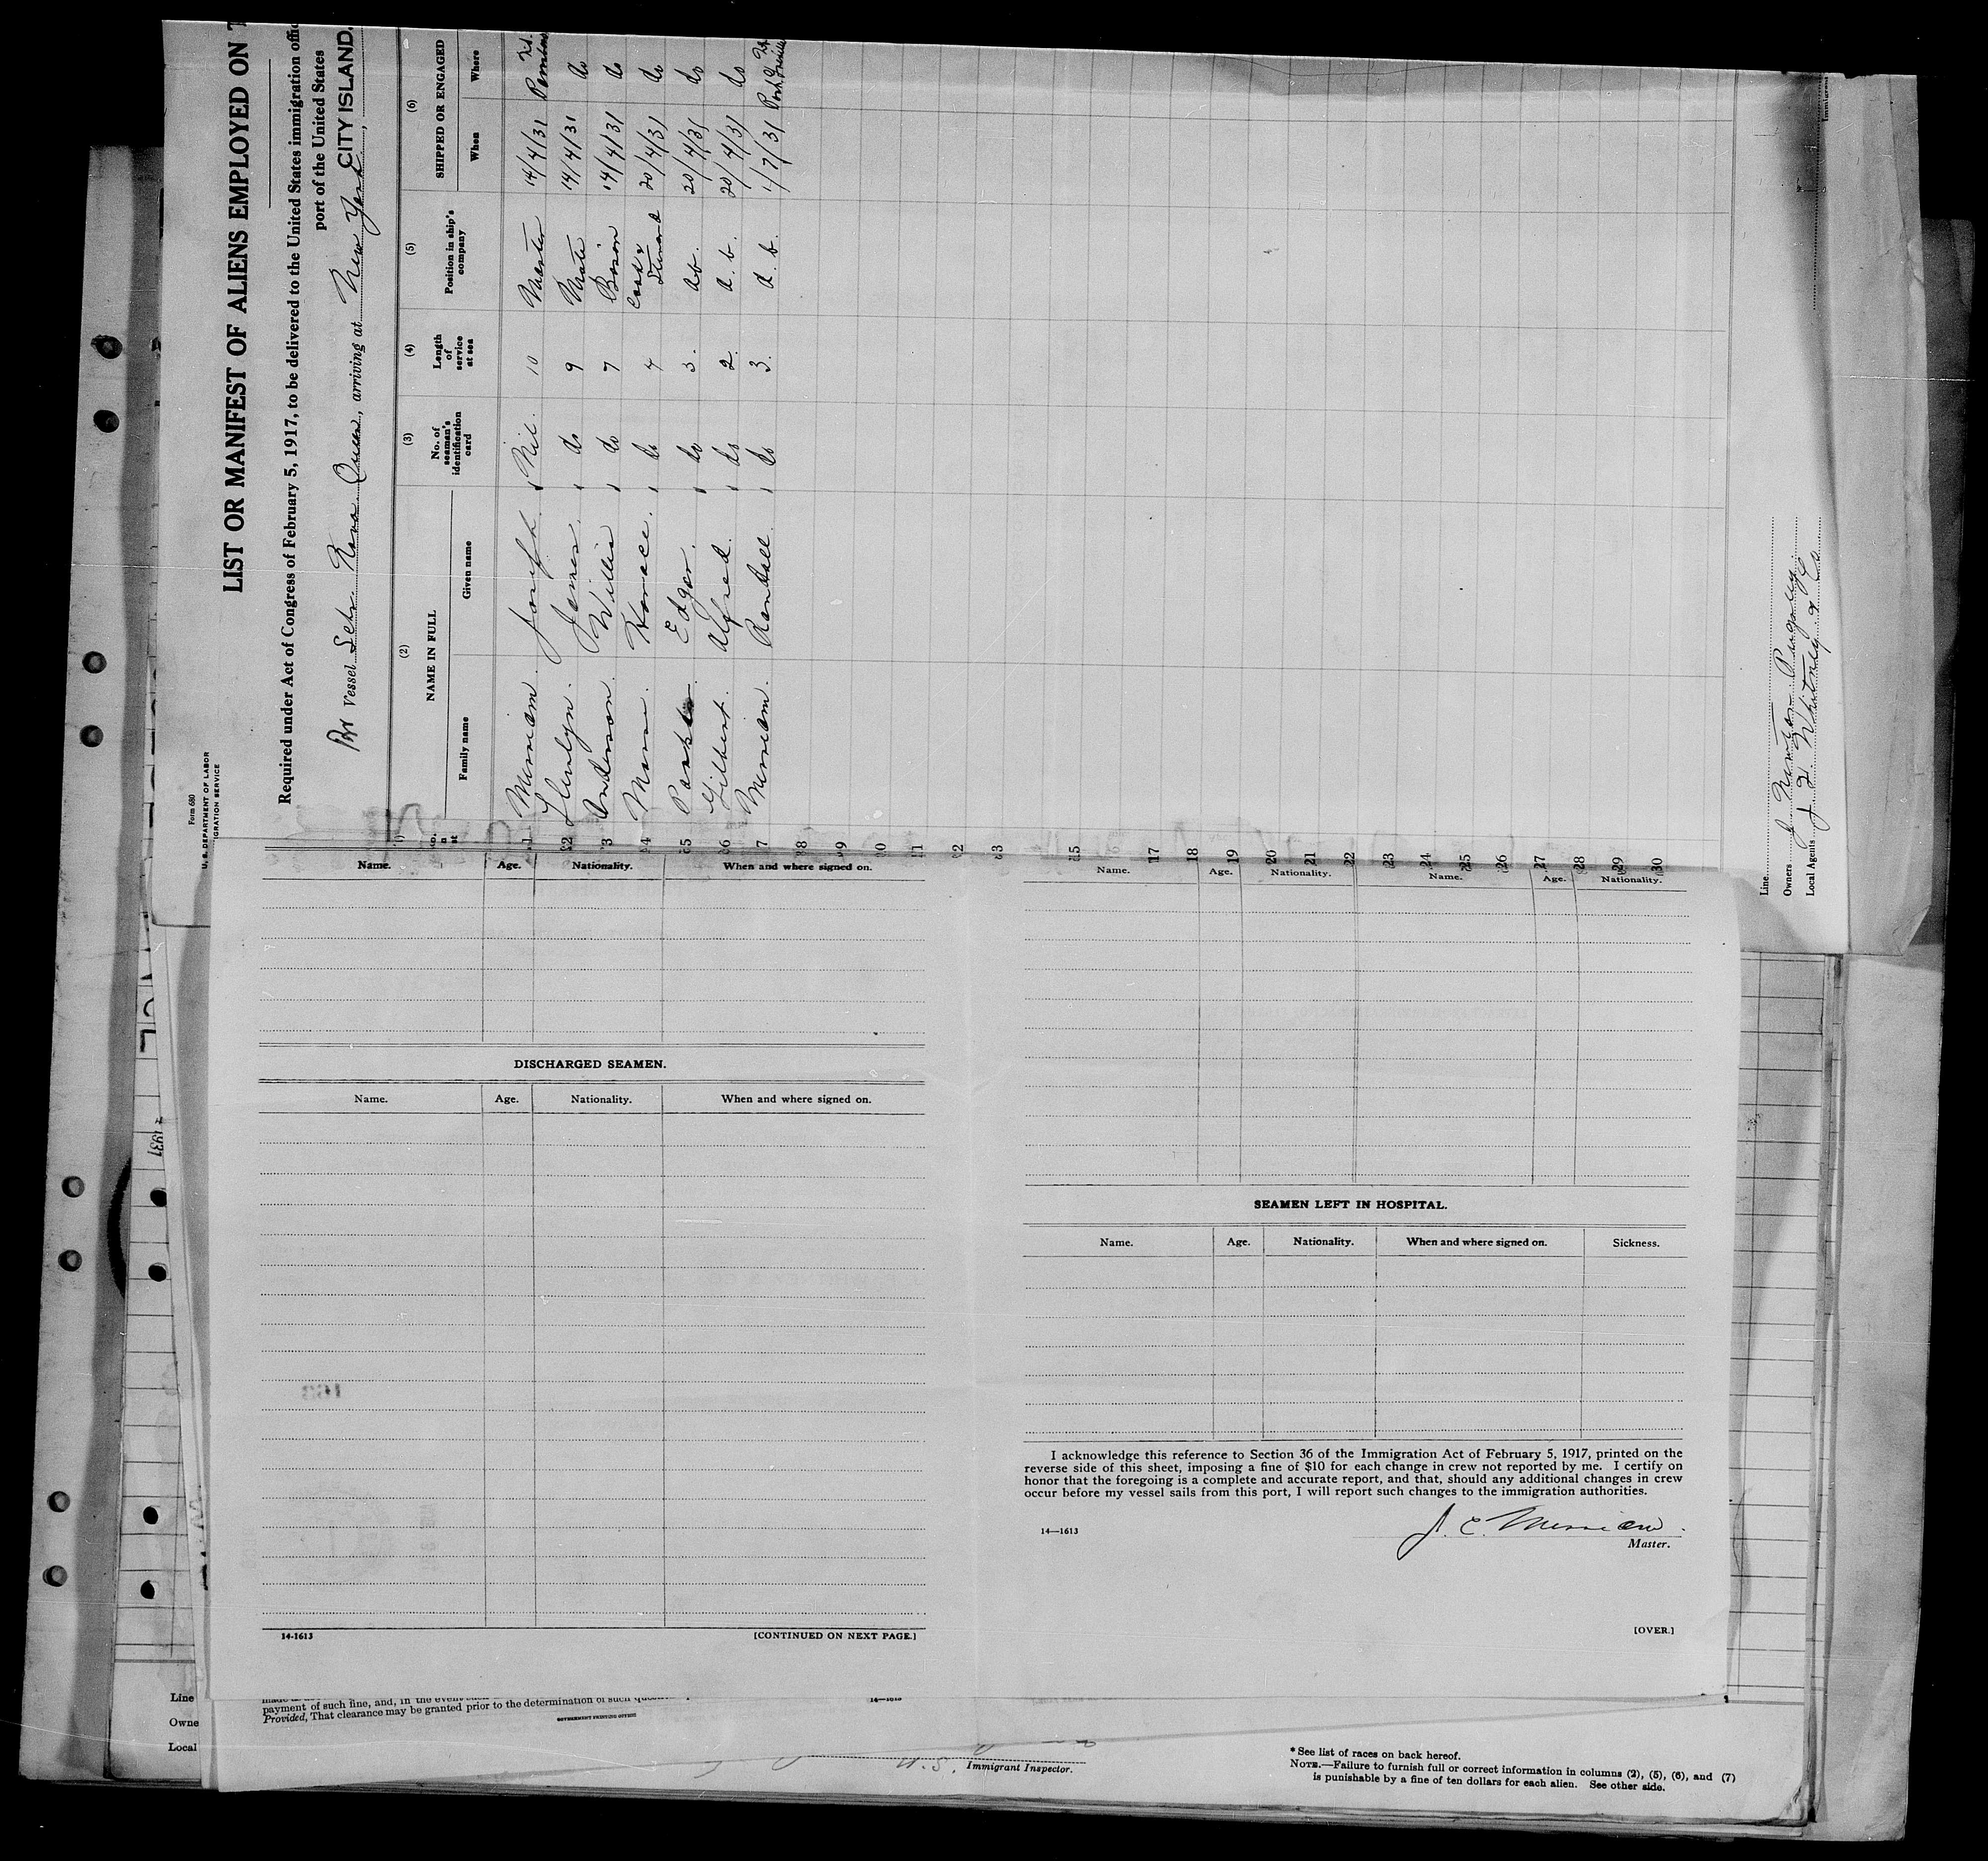 Form 680
U. S. DEPARTMENT OF LABOR
IGRATION SERVICE
LIST OR MANIFEST OF ALIENS EMPLOYED ON T
Required under Act of Congress of February 5, 1917, to be delivered to the United States immigration offic
port of the United States
Br Vessel Schr. Queen, arriving at New York, CITY ISLAND.
(2) (3) (4) (5) (6)
NAME IN FULL No. of seaman's identification card Length of service at sea Position in ship's company SHIPPED OR ENGAGED
Family name Given name When Where
1 Merriam. Joseph. Nil. 10 Master 14/4/31
2 James. do 9 Mate 14/4/31 do
3 Anderson. Willis do 7 Bosun 14/4/31 do
4 Horace. do 4 Cook & Steward 20/4/31 do
5 Edgar. do 3. ab. 20/4/31 do
6 Gilbert. Alfred. do 2. a. b. 20/4/31 do
7 Merriam. Randall. do 3. a. b. 1/7/31 Port
8
9
10
11
12
13
15
17
18
19
20
21
22
23
24
25
26
27
28
29
30
Line
Owners J Newton Pugsley
Local Agents J Whitney & Co
Immigrant
Name. Age. Nationality. When and where signed on.
DISCHARGED SEAMEN.
Name. Age. Nationality. When and where signed on.
163
14-1613 [CONTINUED ON NEXT PAGE.]
Name. Age. Nationality. Name. Age. Nationality.
SEAMEN LEFT IN HOSPITAL.
Name. Age. Nationality. When and where signed on. Sickness.
I acknowledge this reference to Section 36 of the Immigration Act of February 5, 1917, printed on the
reverse side of this sheet, imposing a fine of $10 for each change in crew not reported by me. I certify on
honor that the foregoing is a complete and accurate report, and that, should any additional changes in crew
occur before my vessel sails from this port, I will report such changes to the immigration authorities.
14—1613
J. E. Merriam.
Master.
[OVER.]
Line
Owne
Local
payment of such fine, and, in the event
Provided, That clearance may be granted prior to the determination of such
GOVERNMENT PRINTING OFFICE
14—1613
U.S. Immigrant Inspector.
* See list of races on back hereof.
NOTE.—Failure to furnish full or correct information in columns (2), (5), (6), and (7)
is punishable by a fine of ten dollars for each alien. See other side.
1931